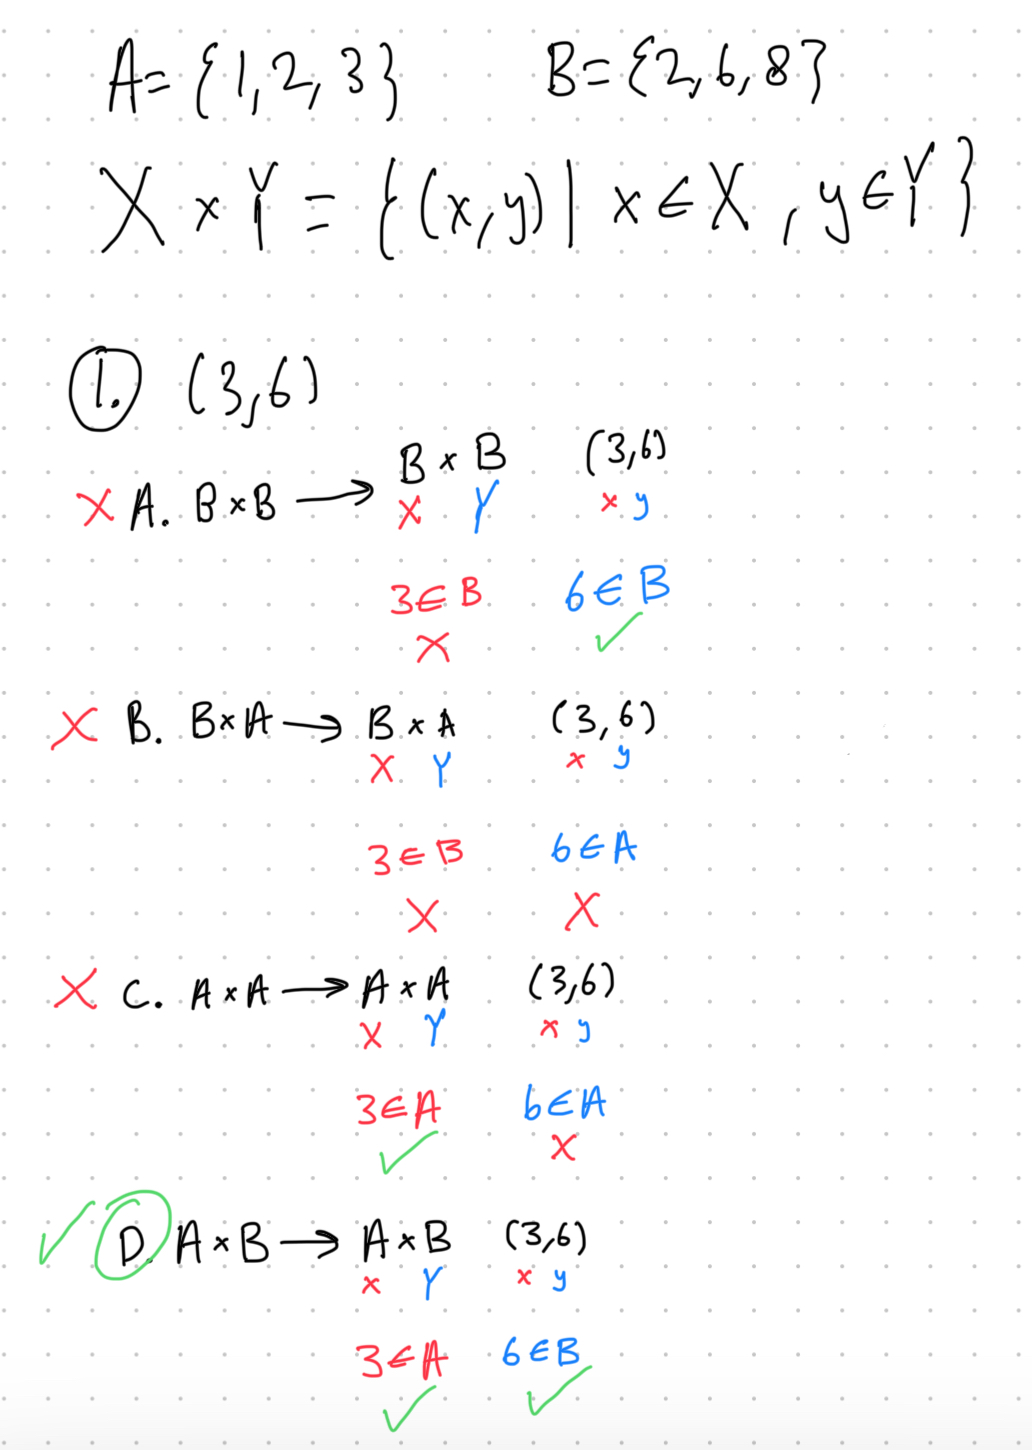 A={1,2,3} B={2,6,8}
X × Y = {(x,y)| x∈X , y∈Y}
1. (3,6)
B × B (3,6)
X A. B×B → X Y x y
3∈B 6∈B
X ✓
X B. B×A → B × A (3,6)
X Y x y
3∈B 6∈A
X X
X C. A×A → A × A (3,6)
X Y x y
3∈A 6∈A
✓ X
✓ D. A×B → A×B (3,6)
x Y x y
3∈A 6∈B
✓ ✓